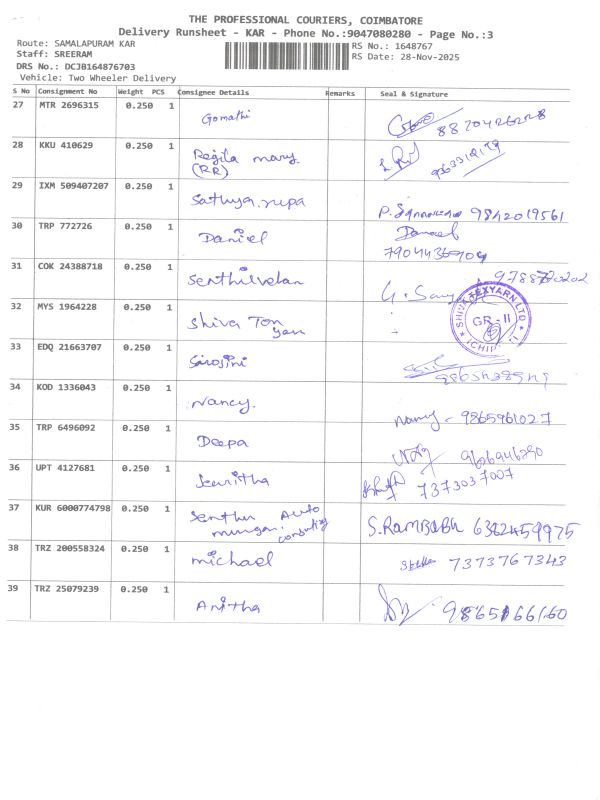 THE PROFESSIONAL COURIERS, COIMBATORE
Delivery Runsheet - KAR - Phone No.:9047080280 - Page No.:3
Route: SAMALAPURAM KAR
RS No.: 1648767
Staff: SREERAM
RS Date: 28-Nov-2025
DRS No.: DCJB164876703
Vehicle: Two Wheeler Delivery
S No Consignment No Weight PCS Consignee Details Remarks Seal & Signature
27 MTR 2696315 0.250 1 Gomathi
28 KKU 410629 0.250 1 Regila mary (RR)
29 IXM 509407207 0.250 1 Sathya.rupa 9842019561
30 TRP 772726 0.250 1 Daniel Daniel
31 COK 24388718 0.250 1 Senthilvelan
32 MYS 1964228 0.250 1 Shiva Tex yarn
SHIVA TEXYARN LTD
GR - II
33 EDQ 21663707 0.250 1 Sirojini
34 KOD 1336043 0.250 1 Nancy. Nancy - 9865961027
35 TRP 6496092 0.250 1 Deepa
36 UPT 4127681 0.250 1 7373037007
37 KUR 6000774798 0.250 1 Senthur Auto
murugan consulting S.RAMBABU 6382459975
38 TRZ 200558324 0.250 1 michael 7373767343
39 TRZ 25079239 0.250 1 Anitha